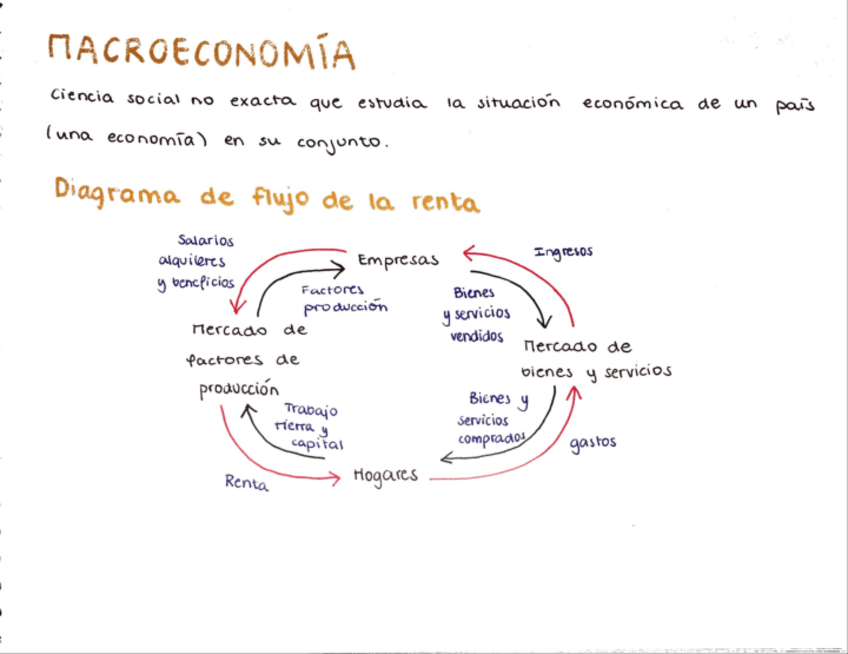 MACROECONOMÍA
Ciencia social no exacta que estudia la situación económica de un país
(una economía) en su conjunto.
Diagrama de flujo de la renta
Salarios
alquileres
y beneficios
Empresas
Ingresos
Factores
producción
Bienes
y servicios
vendidos
Mercado de
factores de
producción
Mercado de
bienes y servicios
Trabajo
tierra y
capital
Bienes y
servicios
comprados
gastos
Renta
Hogares